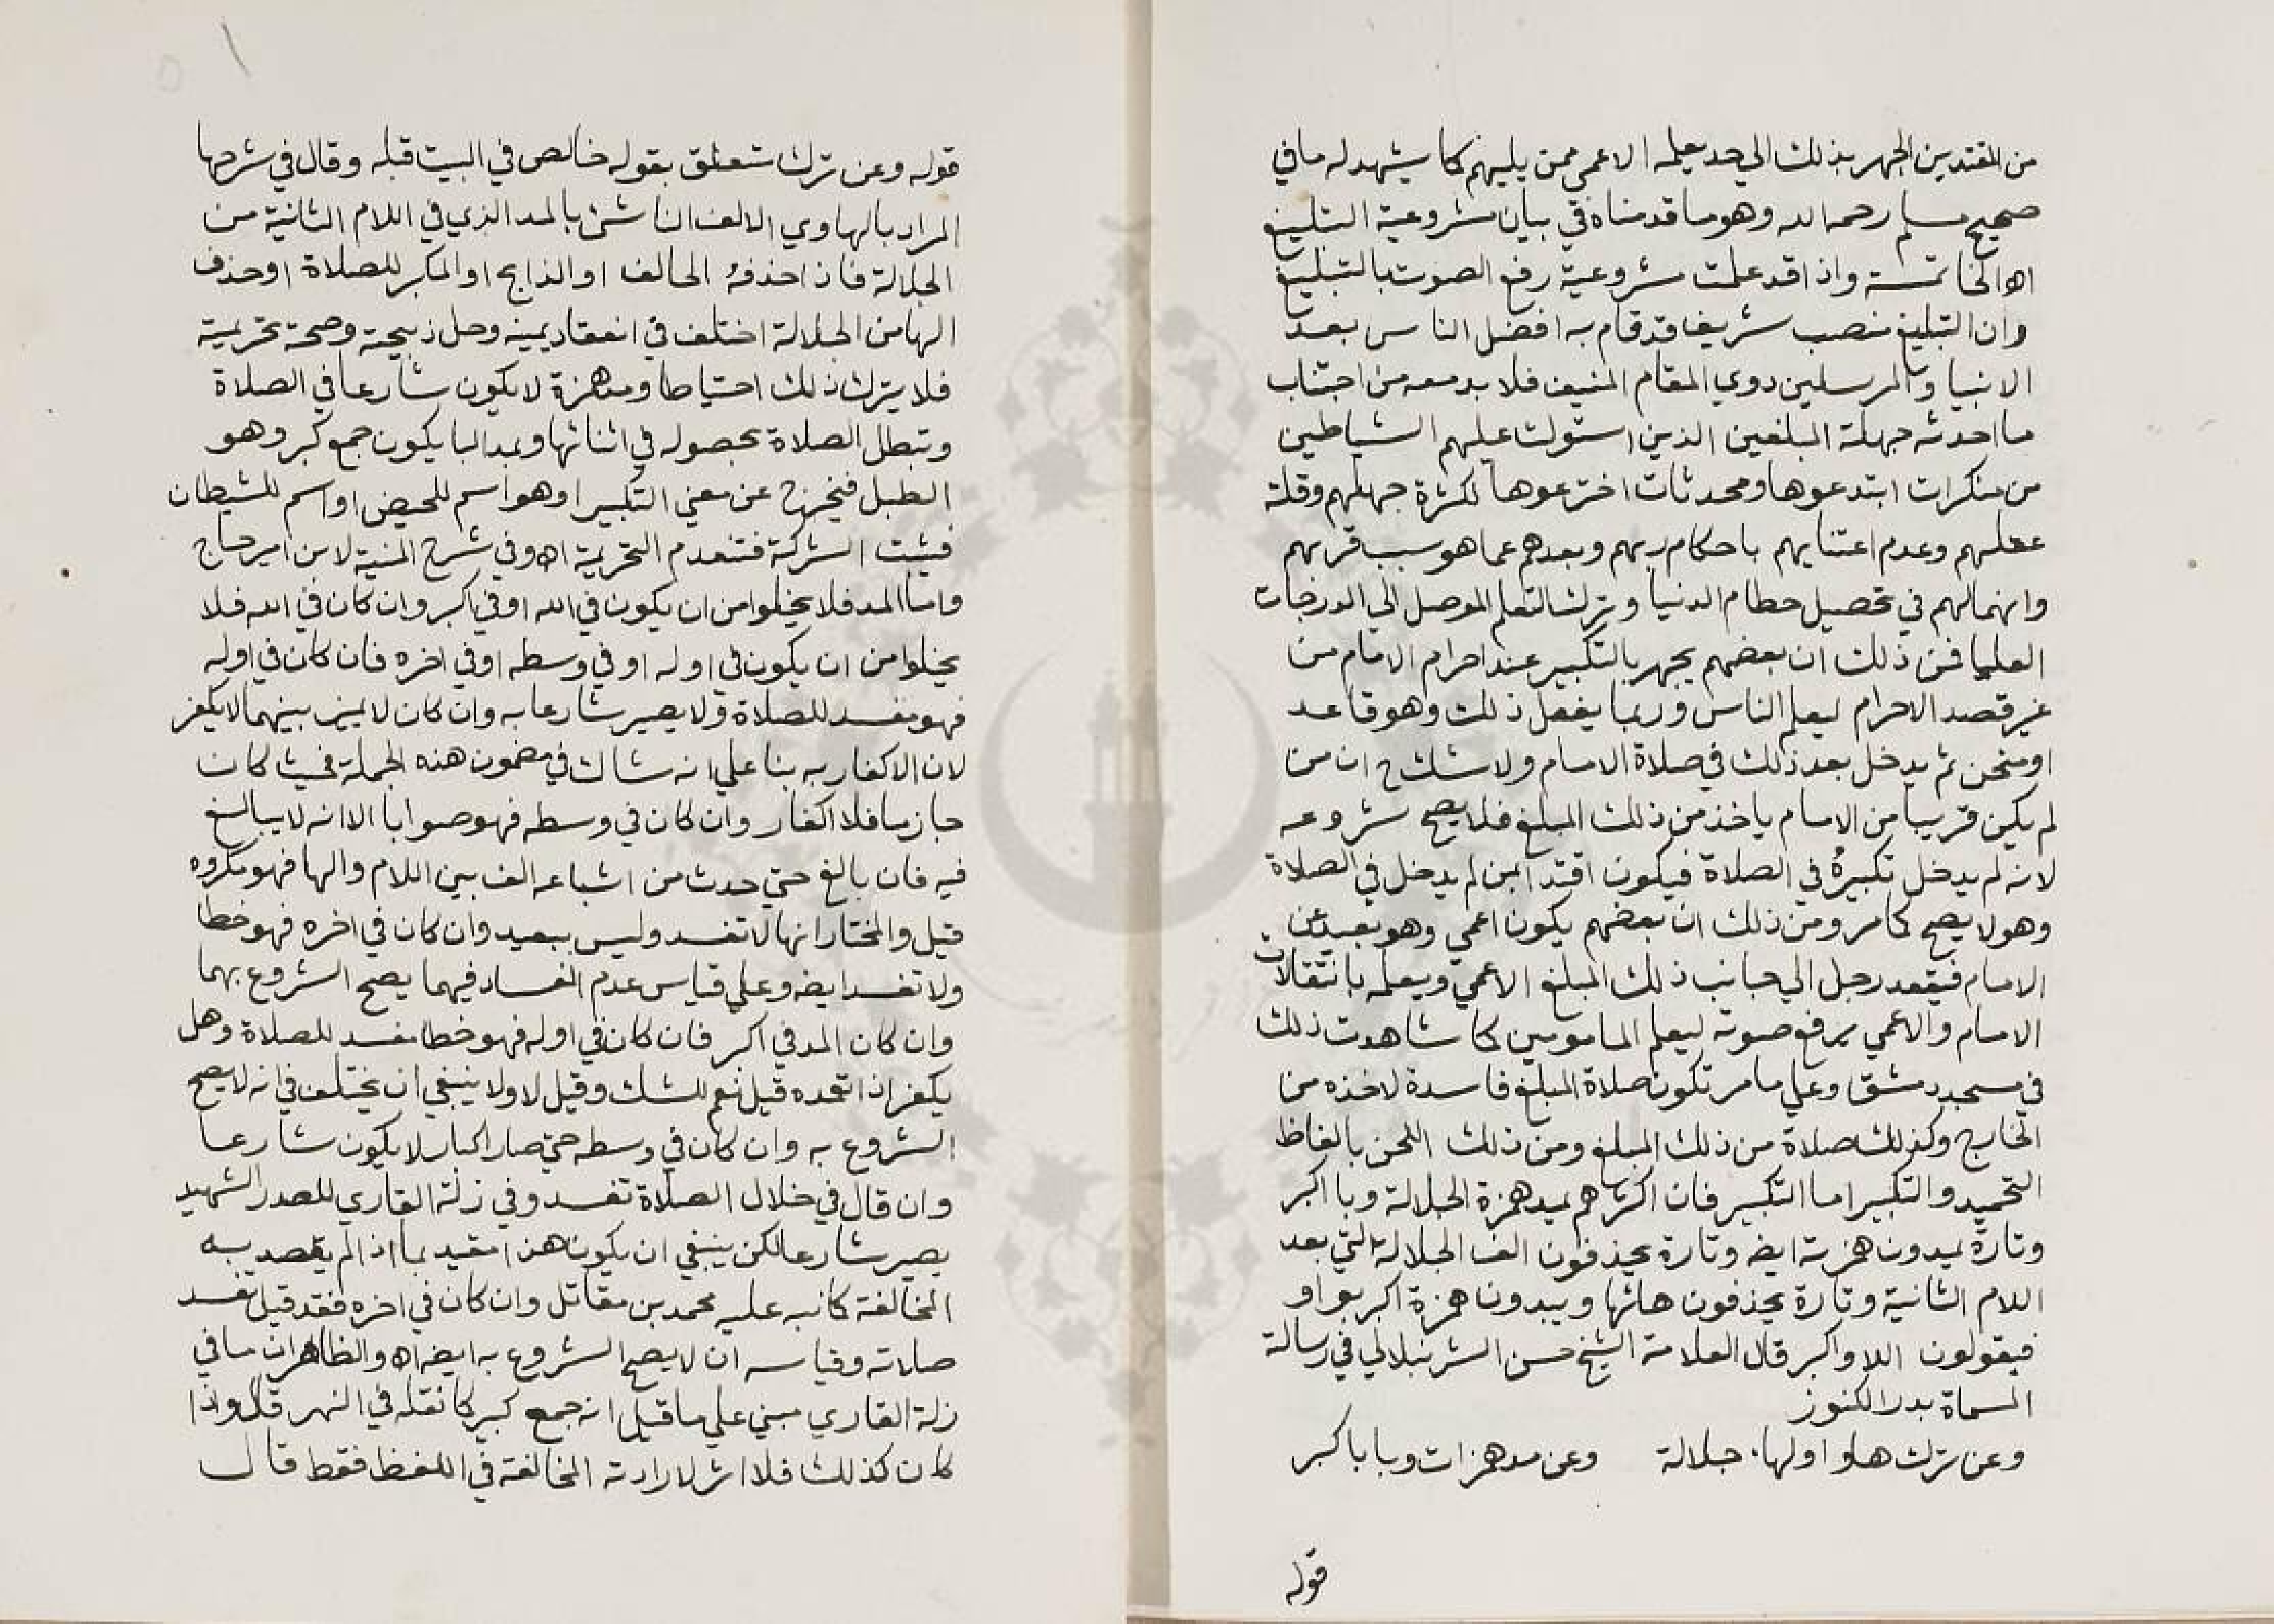 من المقتدين الجهر بذلك الي حد يعلمه الاعمي ممن يليهم كما يشهد له ما في
صحيح مسلم رحمه الله وهو ما قدمناه في بيان مشروعية التبليغ
اه الخاتمـــة واذا قد علمت مشروعية رفع الصوت بالتبليغ
وان التبليغ منصب شريف قد قام به افضل الناس بعد
الانبيا والمرسلين ذوي المقام المنيف فلا بد معه من اجتناب
ما احدثه جهلة المبلغين الذين استولت عليهم الشياطين
من منكرات ابتدعوها ومحدثات اخترعوها لكثرة جهلهم وقلة
عقلهم وعدم اعتنايهم باحكام ربهم وبعدهم عما هو سبب قربهم
وانهمالهم في تحصيل حطام الدنيا وترك التعلم الموصل الي الدرجات
العليا فمن ذلك ان بعضهم يجهر بالتكبير عند احرام الامام من
غير قصد الاحرام ليعلم الناس وربما يفعل ذلك وهو قاعد
او منحن ثم يدخل بعد ذلك في صلاة الامام ولا شك ح ان من
لم يكن قريبا من الامام ياخذ من ذلك المبلغ فلا يصح شروعه
لانه لم يدخل تكبيره في الصلاة فيكون اقتدا بمن لم يدخل في الصلاة
وهو لا يصح كما مر ومن ذلك ان بعضهم يكون اعمي وهو بعيد عن
الامام فيقعد رجل الي جانب ذلك المبلغ الاعمي ويعلمه بانتقالات
الامام والاعمي يرفع صوته ليعلم المامومين كما شاهدت ذلك
في مسجد دمشق وعلي ما مر تكون صلاة المبلغ فاسدة لاخذه من
الخارج وكذلك صلاة من ذلك المبلغ ومن ذلك اللحن بالفاظ
التحميد والتكبير اما التكبير فان اكثرهم يمد همزة الجلالة وبا اكبر
وتارة يمدون همزته ايضه وتارة يحذفون الف الجلالة التي بعد
اللام الثانية وتارة يحذفون هائها ويبدون همزة اكبر بواو
فيقولون اللا واكبر قال العلامة الشيخ حسن الشرنبلالي في رسالة
المسماة بدر الكنوز
وعن ترك هاو اولها جلالة وعن مد همزات وبا باكبر
قوله
قوله وعن ترك متعلق بقوله خالص في البيت قبله وقال في شرحها
المراد بالهاوي الالف الناشئ بالمد الذي في اللام الثانية من
الجلالة فاذا حذفه الحالف او الذابح او المكبر للصلاة او حذف
الها من الجلالة اختلف في انعقاد يمينه وحل ذبيحته وصحة تحريمته
فلا يترك ذلك احتياطا ومد همزة لا يكون شارعا في الصلاة
وتبطل الصلاة بحصوله في اثنائها وبمد البا يكون جمع كبر وهو
الطبل فيخرج عن معني التكبير او هو اسم للحيض او اسم للشيطان
فيثبت الشركة فتنعدم التحريمة اه وفي شرح المنية لابن امير حاج
واما المد فلا يخلوا من ان يكون في الله او في اكبر وان كان في الله فلا
يخلوا من ان يكون في اوله او في وسطه او في اخره فان كان في اوله
فهو مفسد للصلاة ولا يصير شارعا به وان كان لا يميز بينهما لا يكفر
لان الاكفار به بنا علي انه شاك في مضمون هذه الجملة فحيث كان
جازما فلا اكفار وان كان في وسطه فهو صوابا الا انه لا يبالغ
فيه فان بالغ حتي حدث من اشباعه الف بين اللام والها فهو مكروه
قيل والمختار انها لا تفسد وليس ببعيد وان كان في اخره فهو خطا
ولا تفسد ايضه وعلي قياس عدم الفساد فيهما يصح الشروع بهما
وان كان المد في اكبر فان كان في اوله فهو خطا مفسد للصلاة وهل
يكفر اذا تعمده قيل نعم للشك وقيل لا ولا ينبغي ان يختلف في انه لا يصح
الشروع به وان كان في وسطه حتي صار اكبار لا يكون شارعا
وان قال في خلال الصلاة تفسد وفي زلة القاري للصدر الشهيد
يصير شارعا لكن ينبغي ان يكون هذا مقيد بما اذا لم يقصد به
المخالفة كما نبه عليه محمد بن مقاتل وان كان في اخره فقد قيل تفسد
صلاته وقياسه ان لا يصح الشروع به ايضه اه والظاهر ان ما في
زلة القاري مبني علي ما قيل انه جمع كبير كما نقله في النهر قال واذا
كان كذلك فلا اثر لارادته المخالفة في اللفظ فقط قال